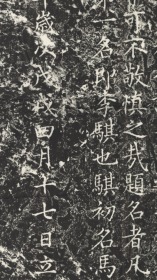 可不敬慎之哉題名者凡
一名即李騏也騏初名馬
歲次戊戌四月十七日立